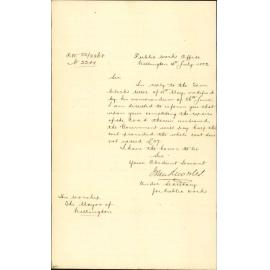 Public Works Office
Wellington 4th July 1882
Sir
In reply to the Town
Clerk's letter of May, modified
by his memorandum of 26th June
I am directed to inform you that
upon your completing the repairs
of the Road therein mentioned,
the Government will pay half the
cost provided the whole cost does
not exceed
I have the honor to be
Sir
Your Obedient Servant
Under Secretary
for Public Works
His Worship
The Mayor of
Wellington